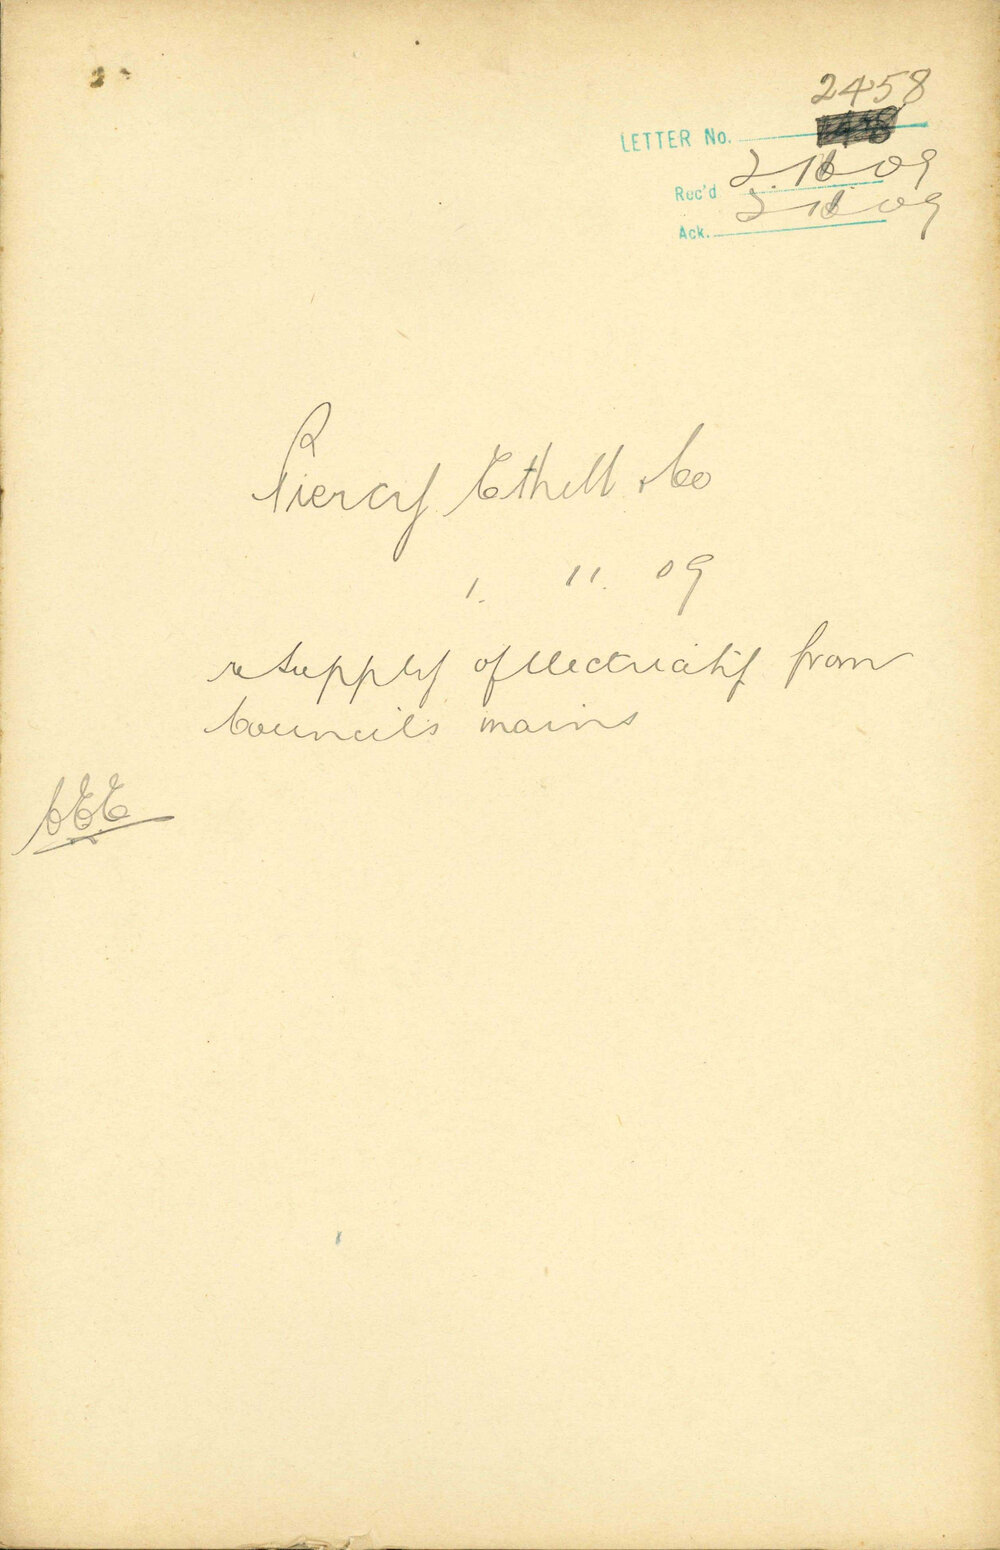 2458
LETTER No.
Rec'd 2. 11 09
Ack. 2 11 09
Piercy Ethell & Co
1. 11. 09
re supply of Electricity from
Councils mains
CEE